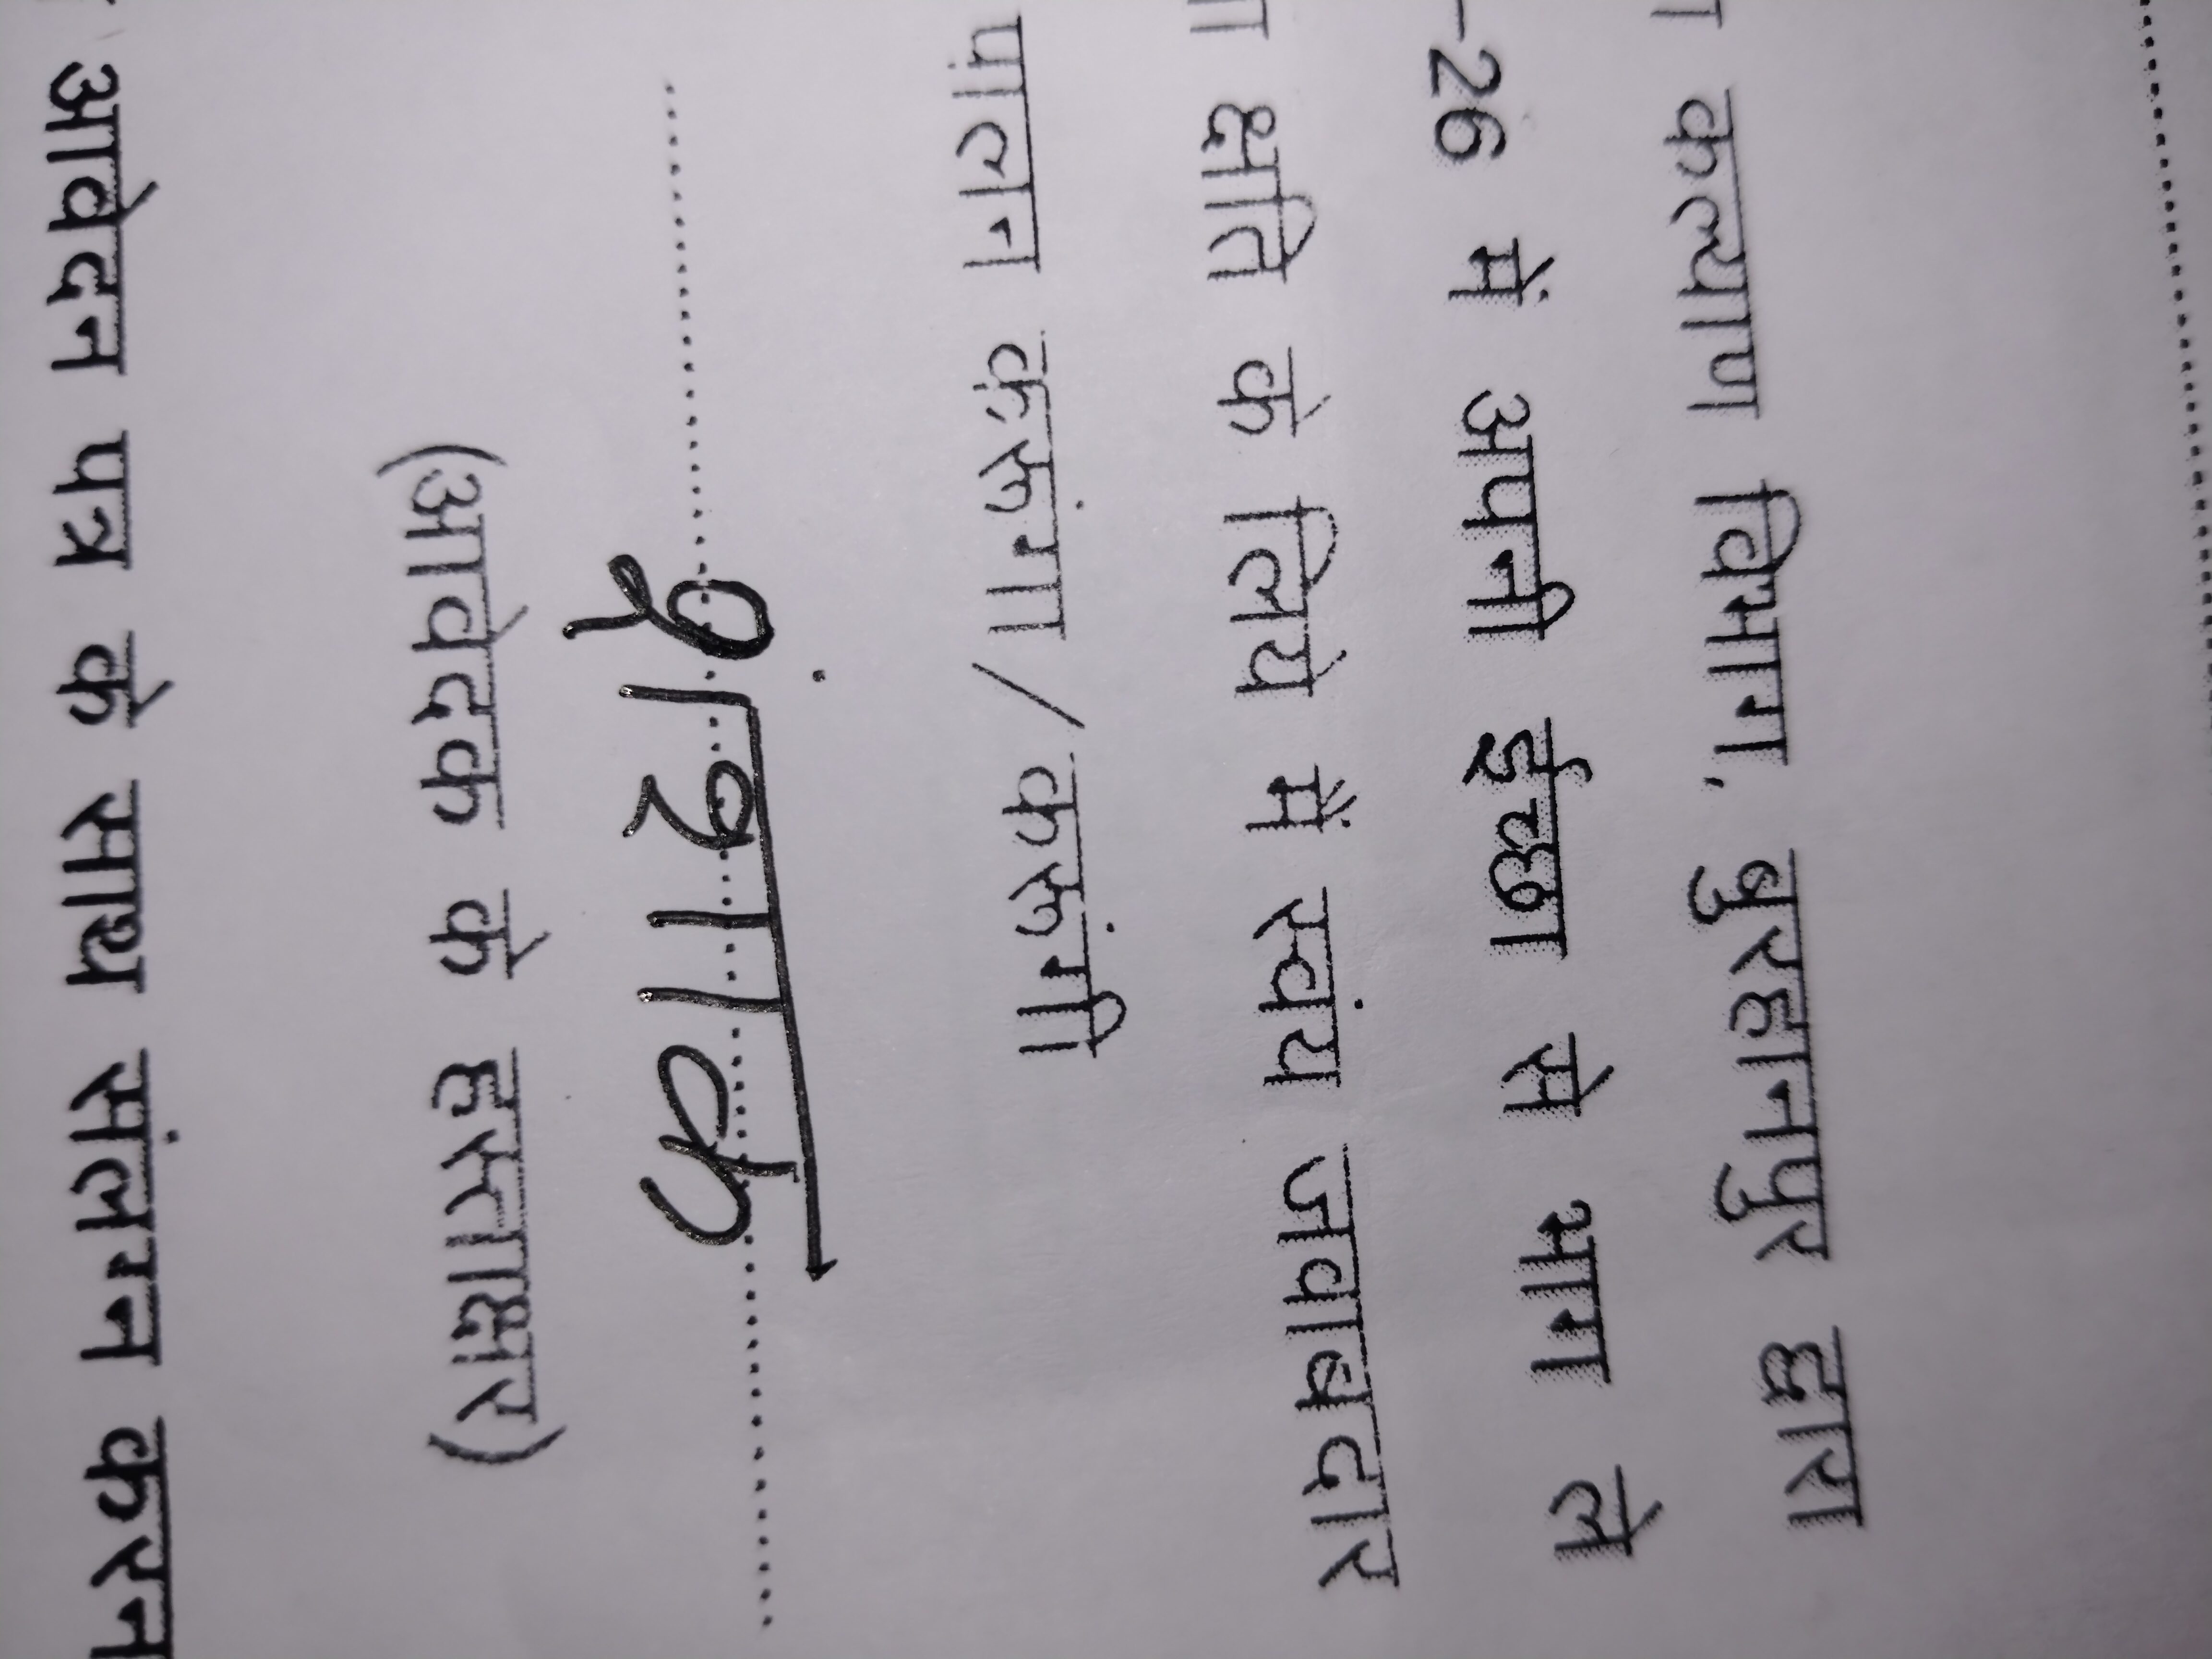 कल्याण विभाग, बुरहानपुर द्वारा
-26 में अपनी ईच्छा से भाग ले
क्षति के लिये में स्वंय जवाबदार
पालन करूंगा/करूंगी
शंशाक
(आवेदक के हस्ताक्षर)
आवेदन पत्र के साथ संलग्न करन